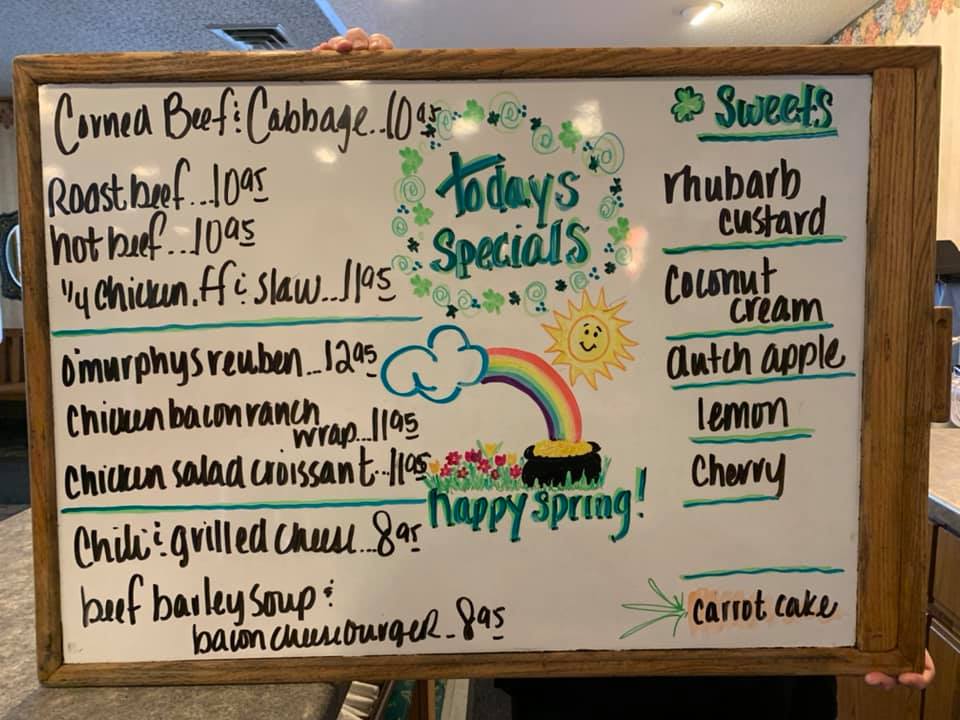 Corned Beef & Cabbage..10 95
Roast beef...10 95
hot beef...10 95
1/4 chicken. ff & slaw...11 95
o'murphys reuben...12 95
chicken bacon ranch
wrap...11 95
chicken salad croissant..11 95
Chili & grilled cheese...8 95
beef barley soup &
bacon cheeseburger..8 95
todays
specials
happy spring!
Sweets
rhubarb
custard
coconut
cream
dutch apple
lemon
cherry
carrot cake